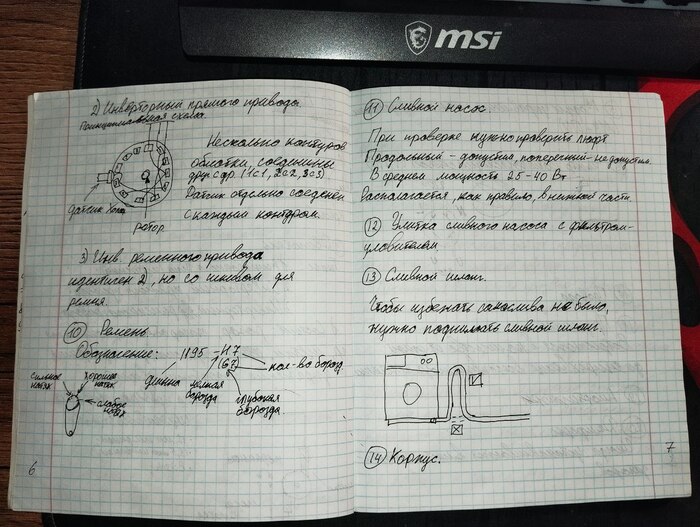 msi
2) Инверторный прямого привода
Принципиальная схема.
Несколько контуров
обмотки, соединины
друг с др. (1с1, 2с2, 3с3)
Датчик отдельно соеденен
с каждым контуром.
датчик Хола
ротор
3) Инв. ременного привода
идентичен 2), но со шкивом для
ремня.
10 Ремень.
Обозначение: 1195 – H7
(6)
кол-во борозд
длинна
мелкая
борозда
глубокая
борозда.
сильное
натяж
хорошее
натяж
слабое
натяж
6
11 Сливной насос.
При проверке нужно проверить люфт
Продольный – допустим, поперечний – не допустим.
В среднем мощность 25–40 Вт
Располагается, как правило, в нижней части.
12 Улитка сливного насоса с фильтром-
уловителем
13 Сливной шланг.
Чтобы избежать самослива не было,
нужно поднимать сливной шланг.
14 Корпус.
7